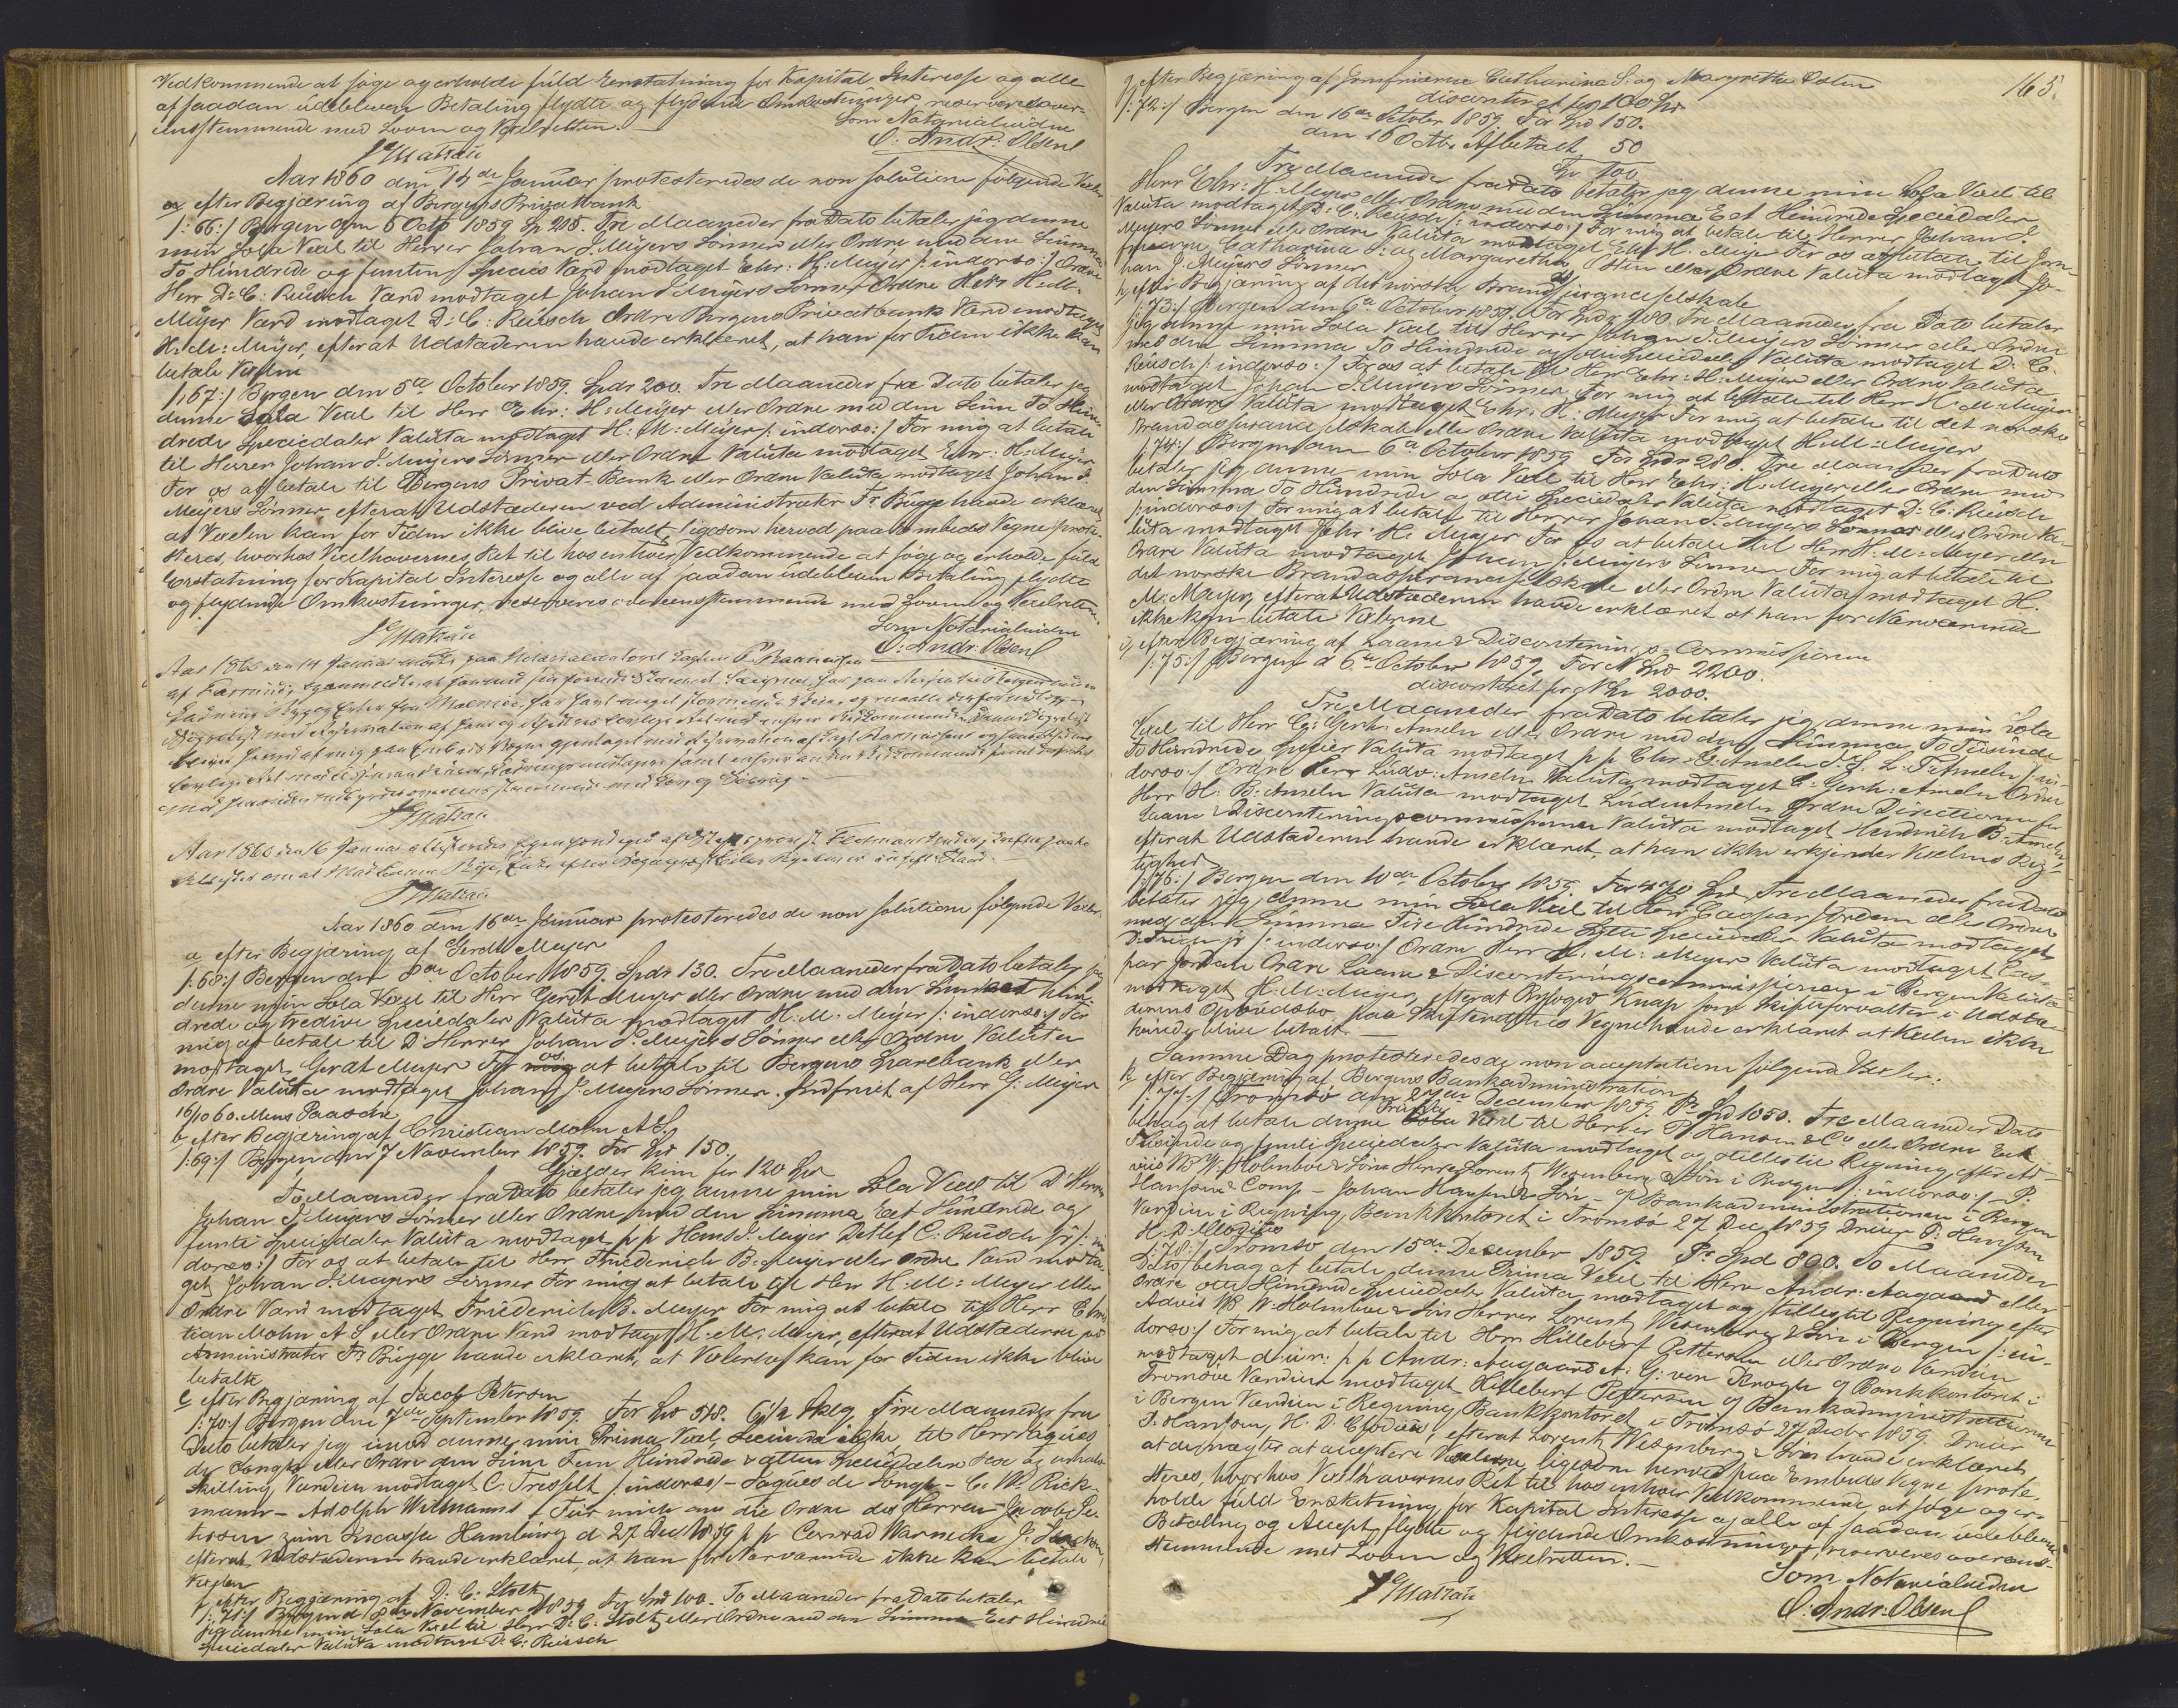 Vedkommende at søge og erholde fuld Erstatning for Kapital Interesse og alle
af saadan udebleven Betaling flydte og flydende Omkostninger reserveredes over-
ensstemmende med Loven og Vexelretten. —
Som Notarialvidne
O: Andr: Olsen
Aar 1860 den 14de Januar protesteredes de non solutione følgende Vexler
a, efter Begjæring af Bergens Privatbank
/:66:/ Bergen den 5 Octb 1859 Sp 215. Tre Maaneder fra Dato betaler jeg denne
min Sola Vexel til Herrer Johan J. Meyers Sønner eller Ordre med den Summa
To Hundrede og femten Species Værd modtaget Chr: H: Meyer /: indorso:/ Ordre
Herr D: C: Reusch Værd modtaget Johan J Meyers Sønner Ordre Herr H: M:
Meyer Værd modtaget D: C: Reusch Ordre Bergens Privatbank Værd modtaget
H: M: Meyer, efterat Udstederen havde erklæret, at han for Tiden ikke kan
betale Vexlen
/:67:/ Bergen den 5e October 1859. Spdr 200. Tre Maaneder fra Dato betaler jeg
denne Sola Vexel til Herr Chr: H: Meyer eller Ordre med den Sum To Hun-
drede Speciedaler Valuta modtaget H: M: Meyer /: indorso:/ For mig at betale
til Herrer Johan J. Meyers Sønner eller Ordre Valuta modtaget Chr: H: Meyer
For os at betale til Bergens Privat-Bank eller Ordre Valuta modtaget Johan J.
Meyers Sønner efterat Udstederen ved Administrator Fr Bugge havde erklæret
at Vexelen kan for Tiden ikke blive betalt, ligesom herved paa Embeds Vegne prote-
steres, hvorhos Vexelhavernes Ret til hos enhver Vedkommende at søge og erholde fuld
Erstatning for Kapital Interesse og alle af saadan udebleven Betaling flydte
og flydende Omkostninger, reserveres overeensstemmende med Loven og Vexelretten.
Som Notarialvidne
O: Andr: Olsen
Aar 1860 den 14 Januar
Aar 1860 den 16 Januar
Aar 1860 den 16de Januar protesteredes de non solutione følgende Vexler.
a efter Begjæring af Gerdt Meyer
/:68:/ Bergen den 8de October 1859. Spdr 130. Tre Maaneder fra Dato betaler jeg
denne min Sola Vexel til Herr Gerdt Meyer eller Ordre med den Sum eet Hun-
drede og tredive Speciedaler Valuta modtaget H: M: Meyer /: indorso:/ For
mig at betale til D'Herrer Johan J. Meyers Sønner eller Ordre Valuta
modtaget Gerdt Meyer For os at betale til Bergens Sparebank eller
Ordre Valuta modtaget Johan J. Meyers Sønner. Indfriet af Herr G: Meyer
16/1 60. Mens Paasche
b efter Begjæring af Christian Mohn A S.
/:69:/ Bergen den 7 November 1859. For Spd 150.
Gjælder kun for 120 Spd
To Maaneder fra Dato betaler jeg denne min Sola Vexel til D'Herrer
Johan J Meyers Sønner eller Ordre med den Summa Eet Hundrede og
femti Speciedaler Valuta modtaget p p Hans J. Meyer Detlef C. Reusch jr /: in-
dorso:/ For os at betale til Herr Friederich B. Meyer eller Ordre Værd modta-
get Johan J. Meyers Sønner For mig at betale til Herr H: M: Meyer eller
Ordre Værd modtaget Friederich B. Meyer For mig at betale til Herr Chris
tian Mohn A S. eller Ordre Værd modtaget H: M: Meyer, efterat Udstederen ved
Administrator Fr Bugge havde erklæret, at Vexelen kan for Tiden ikke blive
betalt
c efter Begjæring af Jacob Petersen
/:70:/ Bergen den 7de September 1859. For Spd 518. 61/2 Sklg. Fire Maaneder fra
Dato betaler jeg imod denne min Prima Vexel, Secunda ikke til Herr Jaques
de Jongh eller Ordre den Sum Fem Hundrede & atten Speciedaler sex og en halv
Skilling Værdien modtaget C. Tresselt /: indorso:/ — Jaques de Jongh — C. W. Rick-
mann — Adolph Wilmanns / Für mich an die Ordre des Herren Jacob Pe-
tersen zum Incasso Hamburg d 27 Dec 1859 p p Conrad Warnecke
efterat Udstederen havde erklæret, at han for Nærværende ikke kan betale
Vexlen
f efter Begjæring af D: C: Stoltz
/:71:/ Bergen d 8de November 1859 For Spd 100. To Maaneder fra Dato betaler
jeg denne min Sola Vexel til Herr D: C: Stoltz eller Ordre med den Summa Eet Hundrede
Speciedaler Valuta modtaget D: C: Reusch
165.
g efter Begjæring af Jomfruerne Catharina S. og Margrethe Østen
disconteret for 100 Spd
/:72:/ Bergen den 16de October 1859 For Spd 150.
den 16 Octbr Afbetalt 50
Sp 100
Tre Maaneder fra Dato betaler jeg denne min Sola Vexel til
Herr Chr: H: Meyer eller Ordre med den Summa Eet Hundrede Speciedaler
Valuta modtaget D: C: Reusch /: indorso:/ For mig at betale til Herrer Johan J.
Meyers Sønner eller Ordre Valuta modtaget Chr H. Meyer For os at betale til Jom-
fruerne Catharina S. og Margaretha Østen eller Ordre Valuta modtaget Jo-
han J. Meyers Sønner
h, efter Begjæring af det norske Brandassuranceselskab
/:73:/ Bergen den 6e October 1859. For Spdr 280. Tre Maaneder fra Dato betaler
jeg denne min Sola Vexel til Herrer Johan J. Meyers Sønner eller Ordre
med den Summa To Hundrede og otti Speciedaler Valuta modtaget D: C.
Reusch /: indorso:/ For os at betale til Herr Chr: H: Meyer eller Ordre Valuta
modtaget Johan J. Meyers Sønner, For mig at betale til Herr H: M: Meyer
eller Ordre Valuta modtaget Chr: H: Meyer For mig at betale til det norske
Brandassuranceselskab eller Ordre Valuta modtaget H: M: Meyer
/:74:/ Bergen den 6e October 1859 For Spdr 280. Tre Maaneder fra Dato
betaler jeg denne min Sola Vexel til Herr Chr: H: Meyer eller Ordre med
den Summa To Hundrede og otti Speciedaler Valuta modtaget D: C. Reusch
/: indorso:/ For mig at betale til Herrer Johan J. Meyers Sønner eller Ordre Va-
luta modtaget Chr: H: Meyer For os at betale til Herr H: M: Meyer eller
Ordre Valuta modtaget Johan J. Meyers Sønner For mig at betale til
det norske Brandassuranceselskab eller Ordre Valuta modtaget H.
M: Meyer, efterat Udstederen havde erklæret at han for Nærværende
ikke kan betale Vexlerne
i, efter Begjæring af Laane & Disconterings-Commissionen
/:75:/ Bergen d 6te October 1859. For N Spd 2200.
disconteret for N Sp 2000.
Tre Maaneder fra Dato betaler jeg denne min Sola
Vexel til Herr C: Gerh: Ameln eller Ordre med den Summa To Tusinde
To Hundrede Species Valuta modtaget p p Chr. G: Ameln J. J. L. P: Ameln /: in-
dorso:/ Ordre Herr Ludv: Ameln Valuta modtaget C. Gerh: Ameln Ordre
Herr H: B: Ameln Valuta modtaget Ludv Ameln Ordre Directionen for
Laane & Disconteringscommissionen Valuta modtaget Hendrich B: Ameln,
efterat Udstederen havde erklæret, at han ikke erkjender Vexelens Rig-
tighed
/:76:/ Bergen den 10de October 1859. For 470 Spd Tre Maaneder fra Dato
betaler jeg denne min Sola Vexel til Herr Caspar Jordan eller Ordre
med den Summa Fire Hundrede Sytti Speciedaler Valuta modtaget
D: Friele jr /: indorso:/ Ordre Herr H. M: Meyer Valuta modtaget Cas-
par Jordan Ordre Laane & Disconteringscommissionen i Bergen Valuta
modtaget H: M: Meyer, efterat Byfoged Knap som Skifteforvalter i Udste-
derens Opbudsbo paa Skifterettens Vegne havde erklæret at Vexlen ikke
kunde blive betalt —
Samme Dag protesteredes de non acceptatione følgende Vexler:
k efter Begjæring af Bergens Bankadministration
/:77:/ Tromsø den 27de December 1859. Pr Spd 1050. Tre Maaneder Dato
behag at betale denne Prima Vexel til Herrer P Hansen & Co eller Ordre Eet
Tusinde og femti Speciedaler Valuta modtaget og stilles til Regning efter Ad-
viis W. Holmboe & Søn Herrer Lorentz Wesenberg & Søn i Bergen /: indorso:/ — P.
Hansen & Comp — Johan Hansen & Søn — og Bankadministrationen i Bergen
Værdien i Regning, Bankkontoret i Tromsø 27 Dec 1859 Dreier P: Hansen
H. D. Clodius
/:78:/ Tromsø den 15de December 1859. Pr Spd 800. To Maaneder
Dato behag at betale denne Prima Vexel til Herr Andr: Aagaard eller
Ordre otte Hundrede Speciedaler Valuta modtaget og stilles til Regning efter
Adviis W. Holmboe & Søn Herrer Lorentz Wesenberg & Søn i Bergen /: in-
dorso:/ For mig at betale til Herr Hillebert Pettersen eller Ordre Værdien
modtaget d. u. s: p p Andr: Aagaard A: G: von Krogh og Bankkontoret i
Tromsøe Værdien modtaget Hillebert Pettersen og Bankadministrationen
i Bergen Værdien i Regning Bankkontoret i Tromsø 27 Decbr 1859. Dreier
P. Hansen, H. D. Clodius, efterat Lorentz Wesenberg & Søn havde erklæret
at de nægter at acceptere Vexlerne, ligesom herved paa Embeds Vegne prote-
steres, hvorhos Vexelhavernes Ret til hos enhver Vedkommende at søge og er-
holde fuld Erstatning for Kapital Interesse og alle af saadan udebleven
Betaling og Accept flydte og flydende Omkostninger, reserveres overeens-
stemmende med Loven og Vexelretten. —
Som Notarialvidne
O: Andr: Olsen